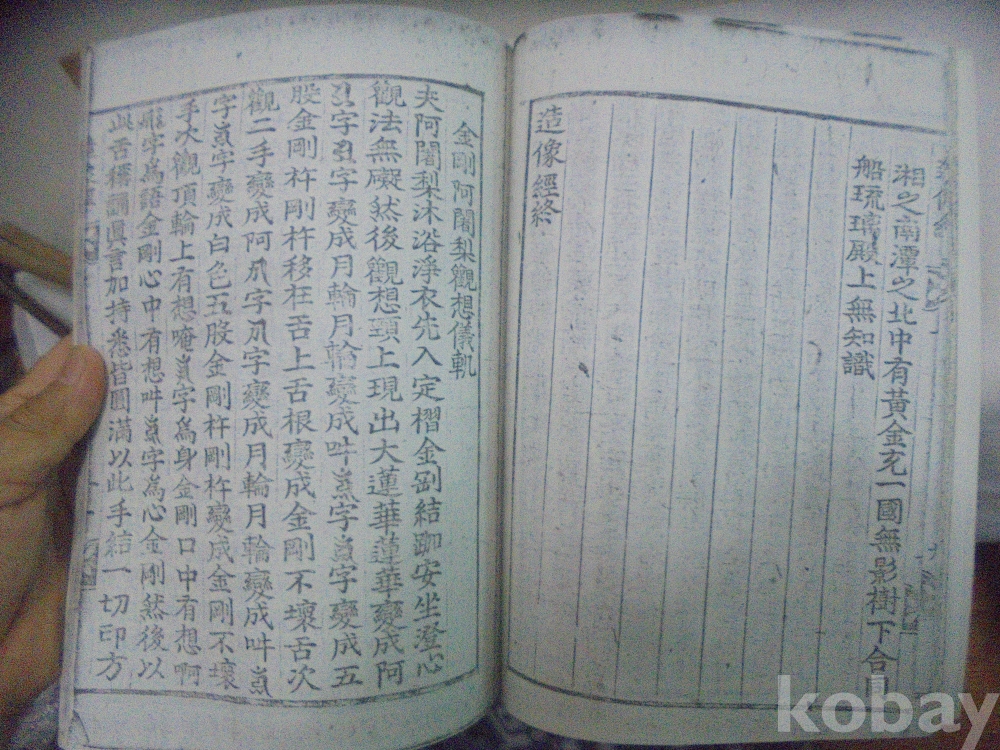 湘之南潭之北中有黃金充一國無影樹下合同
船琉璃殿上無知識
造像經終
金剛阿闍梨觀想儀軌
夫阿闍梨沐浴淨衣先入定榴金剛結跏安坐澄心
觀法無礙然後觀想頭上現出大蓮華蓮華變成阿
字 字變成月輪月輪變成吽 字 字變成五
股金剛杵剛杵移在舌上舌根變成金剛不壞舌次
觀二手變成阿 字 字變成月輪月輪變成吽
字 字變成白色五股金剛杵剛杵變成金剛不壞
手次觀頂輪上有想唵 字為身金剛口中有想啊
字為語金剛心中有想吽 字為心金剛然後以
此舌稱誦眞言加持悉皆圓滿以此手結一切印方
kobay